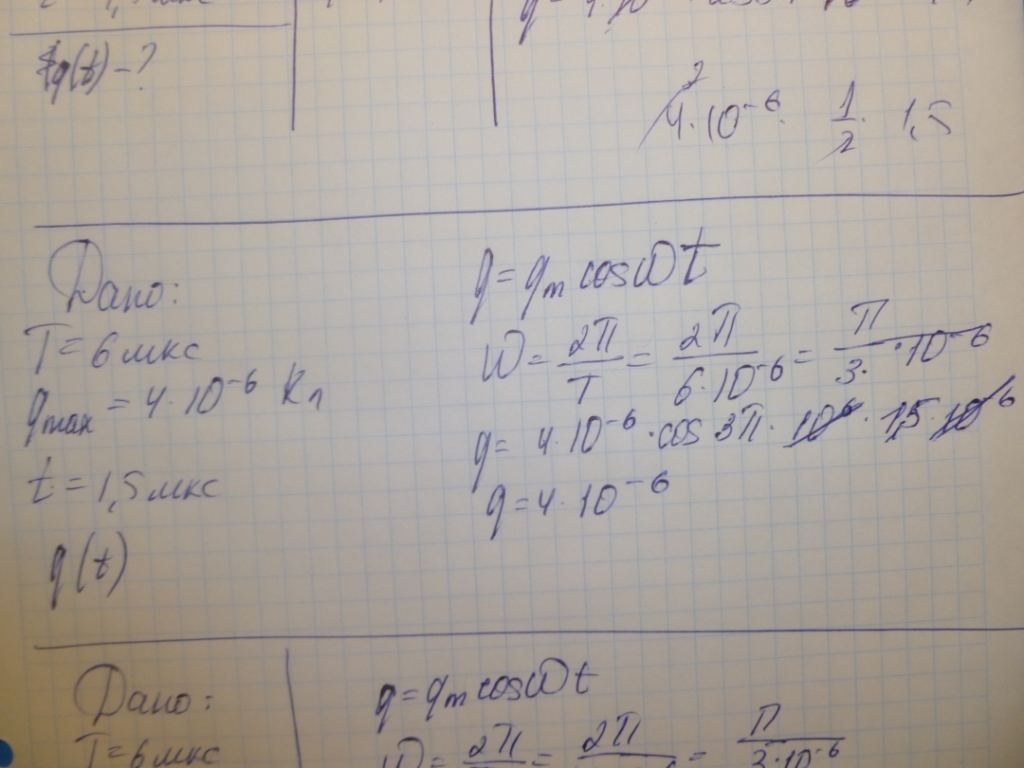 q(t) - ?
4·10⁻⁶· 1/2 · 1,5
2
Дано:
T = 6 мкс
qmax = 4·10⁻⁶ Кл
t = 1,5 мкс
q(t)
q = qm cos ωt
ω = 2π/T = 2π/6·10⁻⁶ = π/3·10⁻⁶
q = 4·10⁻⁶ · cos 3π · 10⁶ · 1,5 · 10⁶
q = 4·10⁻⁶
Дано:
T = 6 мкс
q = qm cos ωt
= 2π = π/3·10⁻⁶